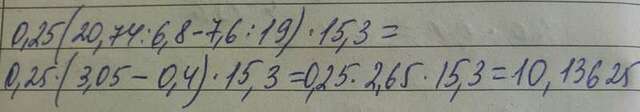 0,25(20,74:6,8-7,6:19)·15,3=
0,25·(3,05-0,4)·15,3=0,25·2,65·15,3=10,13625